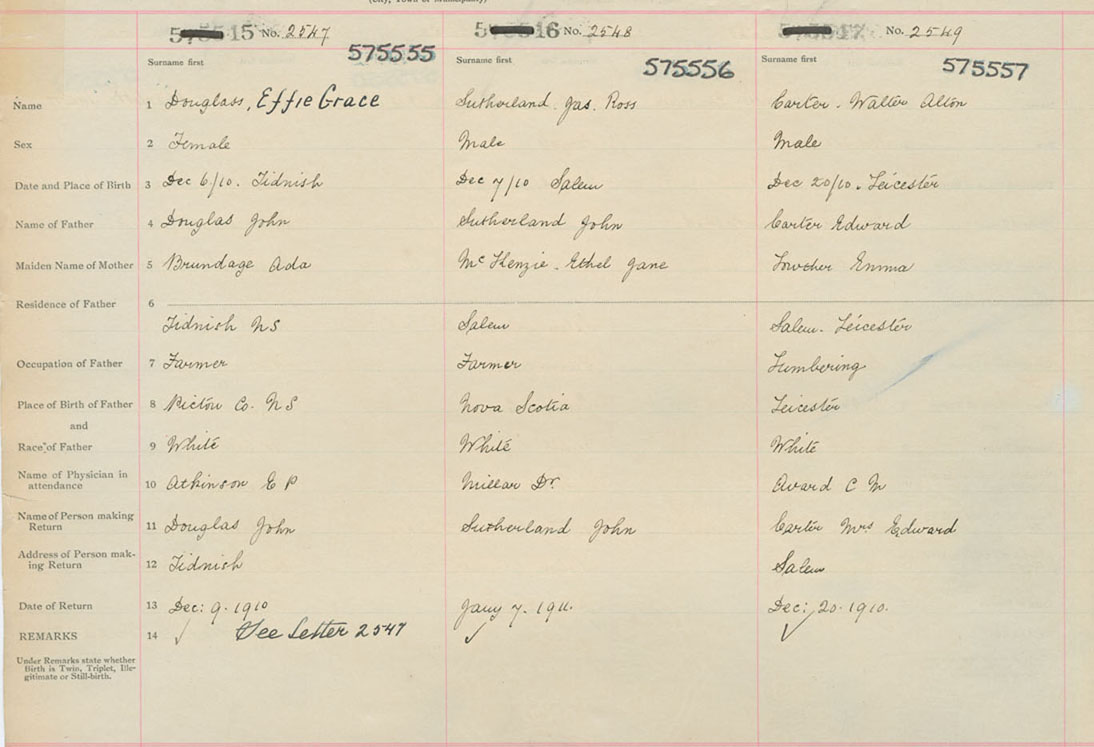 (City, Town or Municipality)
15 No. 2547 16 No. 2548 17 No. 2549
575555 575556 575557
Surname first Surname first Surname first
Name 1 Douglass, Effie Grace Sutherland. Jas. Ross Carter. Walter Alton
Sex 2 Female Male Male
Date and Place of Birth 3 Dec 6/10. Tidnish Dec 7/10 Salem Dec 20/10. Leicester
Name of Father 4 Douglas John Sutherland John Carter Edward
Maiden Name of Mother 5 Brundage Ada Mc Kenzie. Ethel Jane Lowther Emma
Residence of Father 6
Tidnish NS Salem Salem. Leicester
Occupation of Father 7 Farmer Farmer Lumbering
Place of Birth of Father 8 Pictou Co. NS Nova Scotia Leicester
and
Race of Father 9 White White White
Name of Physician in
attendance 10 Atkinson E P Millar Dr. Avard C M
Name of Person making
Return 11 Douglas John Sutherland John Carter Mrs Edward
Address of Person mak-
ing Return 12 Tidnish Salem
Date of Return 13 Dec: 9. 1910 Jany 7. 1911. Dec: 20. 1910.
REMARKS 14 ✓ See Letter 2547 ✓ ✓
Under Remarks state whether
Birth is Twin, Triplet, Ille-
gitimate or Still-birth.